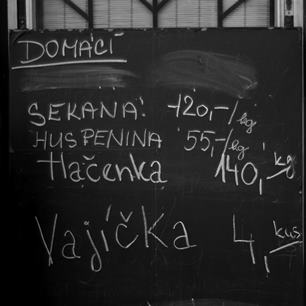 DOMÁCÍ
SEKANÁ: 120,-/kg
HUSPENINA 55,-/kg
tlačenka 140,- kg
Vajíčka 4,- kus